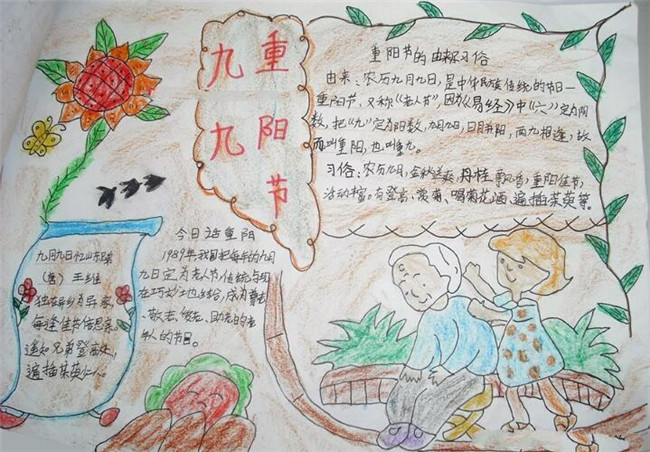 九九
重阳节
重阳节的由来习俗
由来:农历九月九日,是中华民族传统的节日—
重阳节,又称《老人节》,因为《易经》中《六》定为阴
数,把《九》定为阳数,九月九日,日月并阳,两九相逢,故
而叫重阳,也叫重九。
习俗:农历九日,金秋送爽,丹桂飘香,重阳佳节,
活动有登高、赏菊、喝菊花酒、遍插茱萸等。
今日话重阳
1989年我国把每年的九月
九日定为老人节,传统与现
在巧妙地结合,成为尊老
、敬老、爱老、助老的老
年人的节日。
九月九日忆山东兄弟
(唐)王维
独在异乡为异客
每逢佳节倍思亲
遥知兄弟登高处,
遍插茱萸少一人